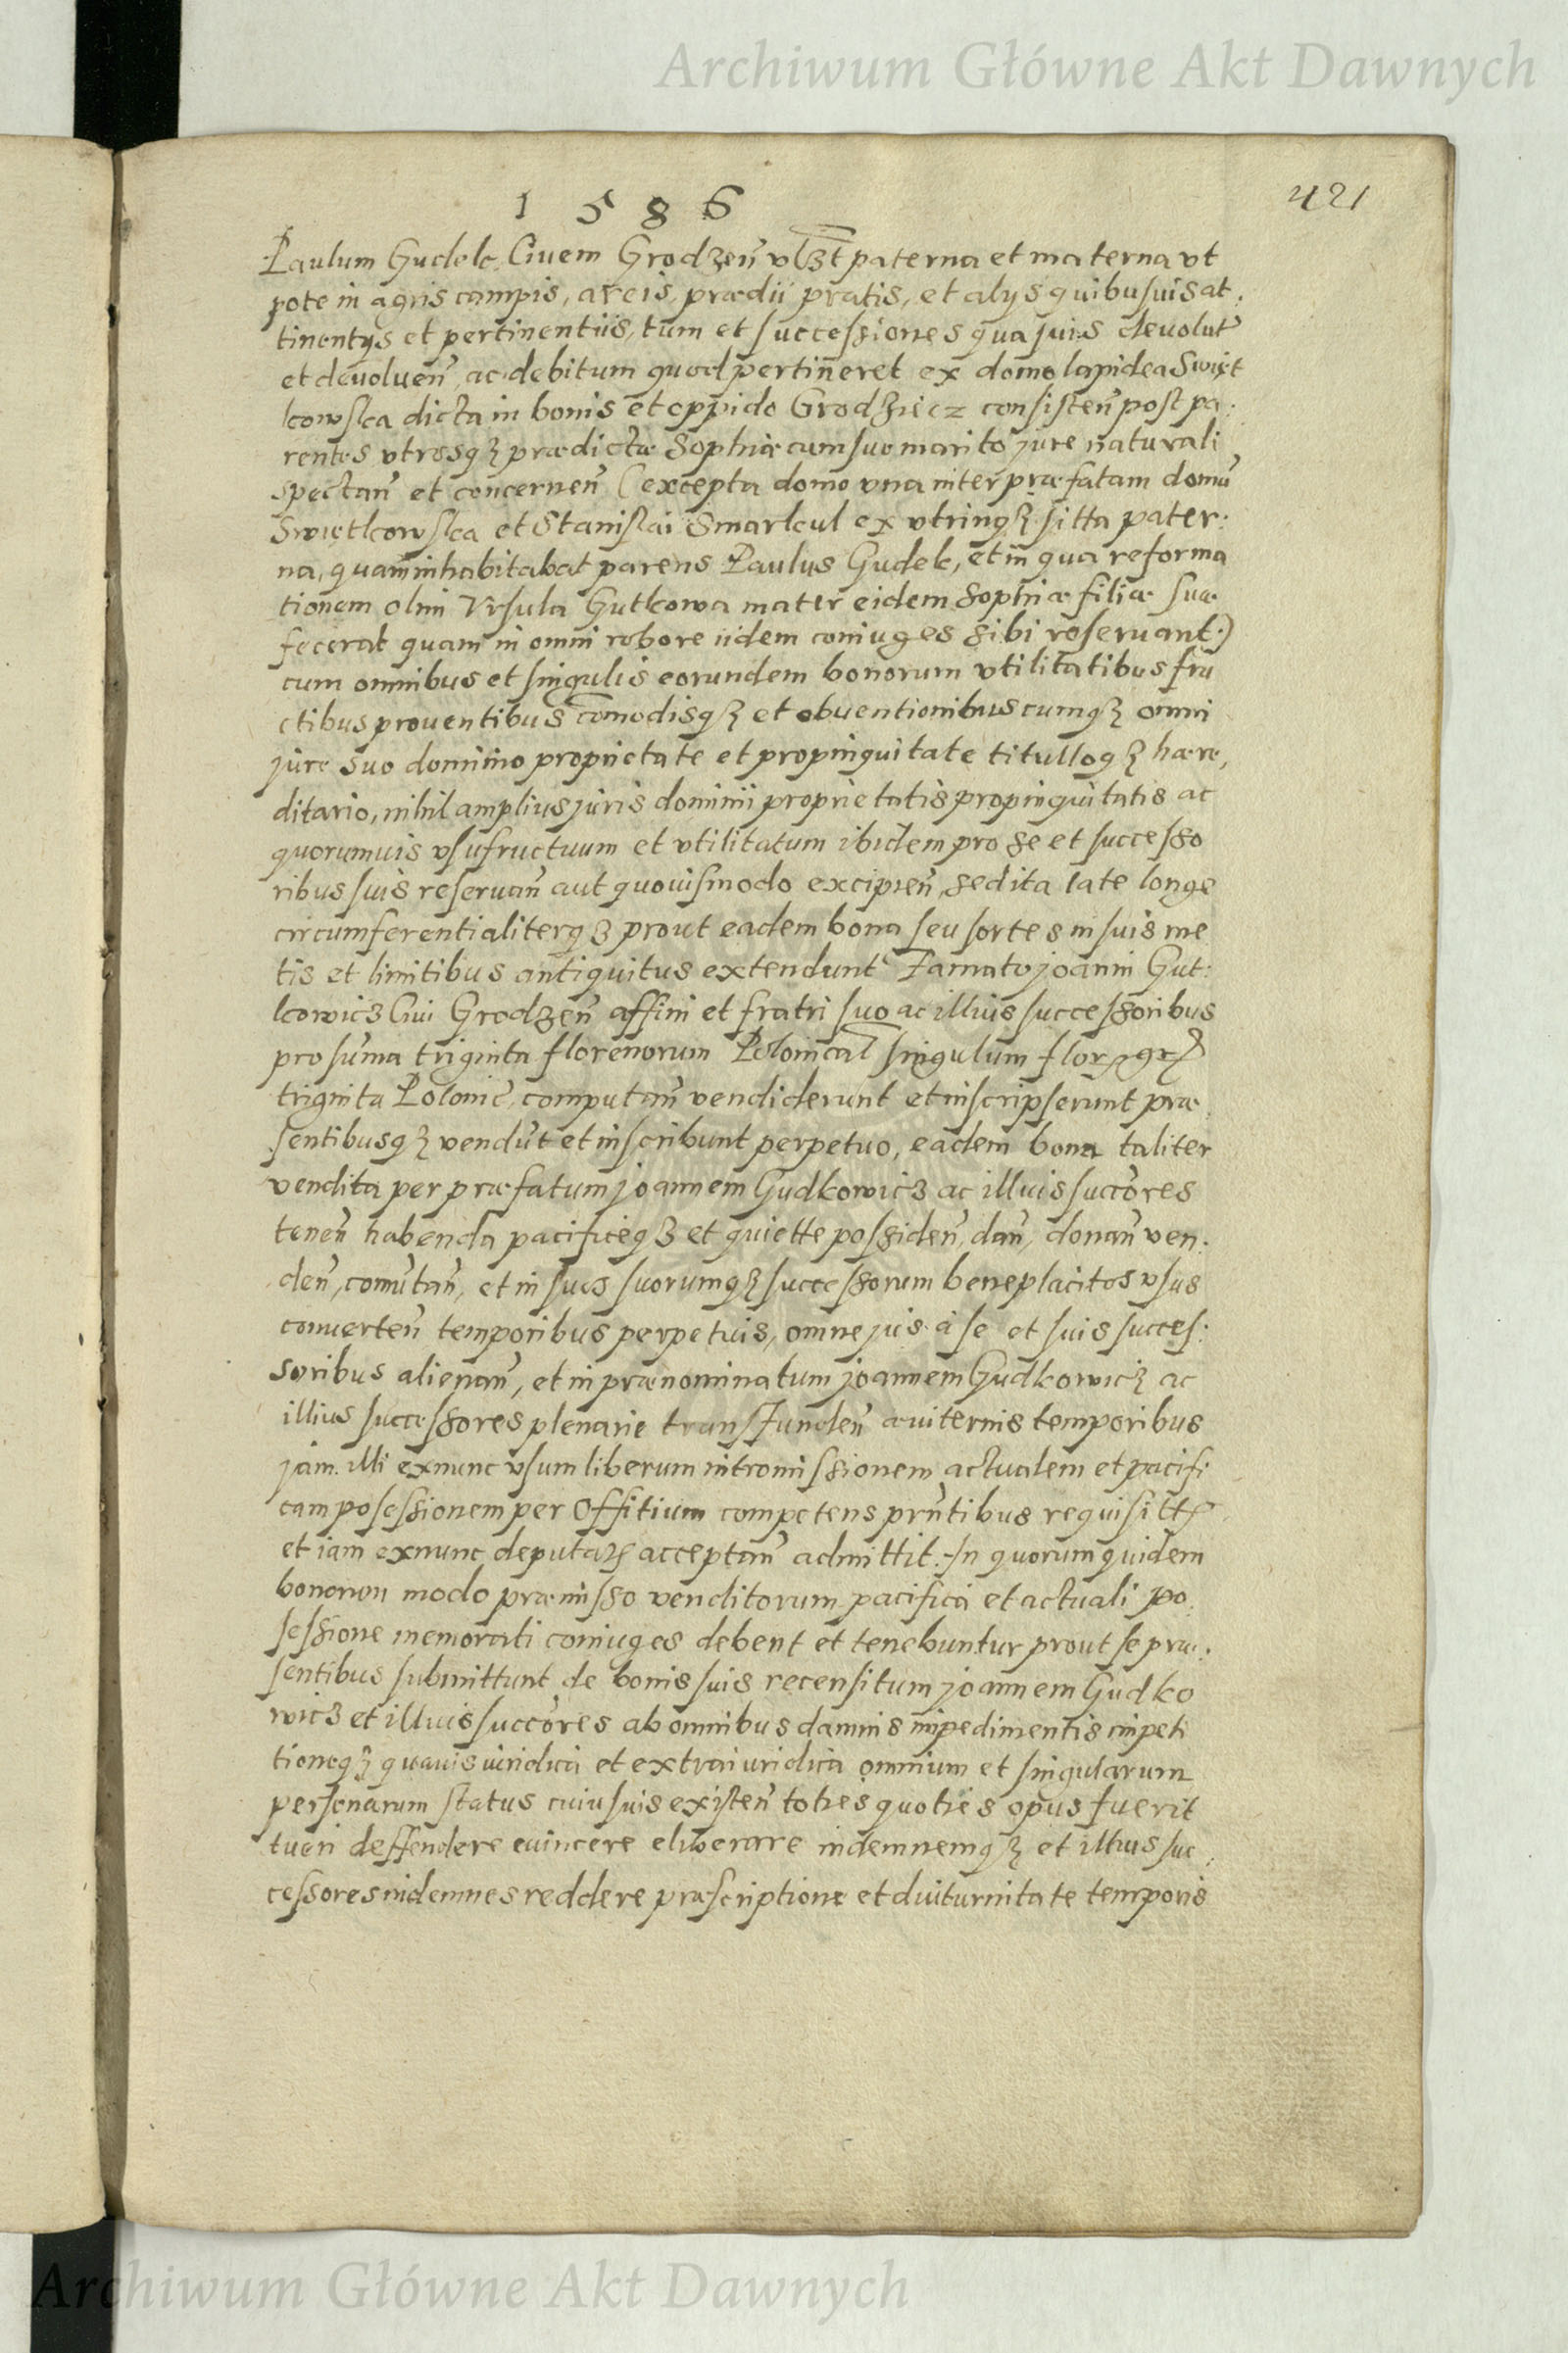 Archiwum Główne Akt Dawnych
1586
421
Paulum Gudek Ciuem Grodzen̄ paterna et materna vt
pote in agris campis, areis, prædii pratis, et alijs quibusuis at
tinentijs et pertinentiis, tum et successiones quasuis deuolut
et deuoluen̄ ac debitum quod pertineret ex domo lapidea Swięt
kowska dicta in bonis et oppido Grodziecz consisten̄ post pa:
rentes vtrosqꝫ prædictæ Sophiæ cum suo marito jure naturali
spectan̄ et concernen̄ (excepta domo vna inter præfatam domū
Swiętkowska et Stanislai Smarkul ex vtrinqꝫ sitta pater:
na, quam inhabitabat parens Paulus Gudek, et in qua reforma
tionem olim Vrsula Gutkowa mater eidem Sophiæ filiæ suæ
fecerat quam in omni robore iidem coniuges sibi reseruant:)
cum omnibus et singulis eorundem bonorum vtilitatibus fru
ctibus prouentibus com̄odisqꝫ et obuentionibuscumqꝫ omni
jure suo dominio proprietate et propinquitate titulloqꝫ hære,
ditario, nihil amplius juris dominii proprietatis propinquitatis ac
quorumuis vsufructuum et vtilitatum ibidem pro se et successo
ribus suis reseruan̄ aut quouismodo excipien̄, sed ita late longe
circumferentialiterqꝫ prout eadem bona seu sortes in suis me
tis et limitibus antiquitus extendunt Famato joanni Gut:
kowicz Ciui Grodzen̄ affini et fratri suo ac illius successoribus
pro sum̄a triginta florenorum Polonical singulum flor
triginta Polonic computan̄ vendiderunt et inscripserunt præ
sentibusqꝫ vendūt et inscribunt perpetuo, eadem bona taliter
vendita per præfatum joannem Gudkowicz ac illius succores
tenen̄ habenda pacificeqꝫ et quiette possiden̄, dan̄, donan̄ ven:
den̄, com̄utan̄, et in suos suorumqꝫ successorum beneplacitos vsus
conuerten̄ temporibus perpetuis, omne jus à se et suis succes:
soribus alienan̄, et in prænominatum joannem Gudkowicz ac
illius successores plenarie transfunden̄ æuiternis temporibus
jam illi exnunc vsum liberum intromissionem actualem et pacifi
cam posessionem per Offitium competens prn̄tibus requisitt
et iam exnunc deputat acceptan̄ admittit. In quorum quidem
bonorum modo præmisso venditorum pacifica et actuali po
sessione memorati coniuges debent et tenebuntur prout se præ:
sentibus submittunt de bonis suis recensitum joannem Gudko
wicz et illius succores ab omnibus damnis impedimentis impeti
tioneqꝫ quauis iuridica et extraiuridica omnium et singularum
personarum status cuiusuis existen̄ toties quoties opus fuerit
tueri deffendere euincere eliberare indemnemqꝫ et illius suc
cessores indemnes reddere præscriptione et diuturnitate temporis
Archiwum Główne Akt Dawnych